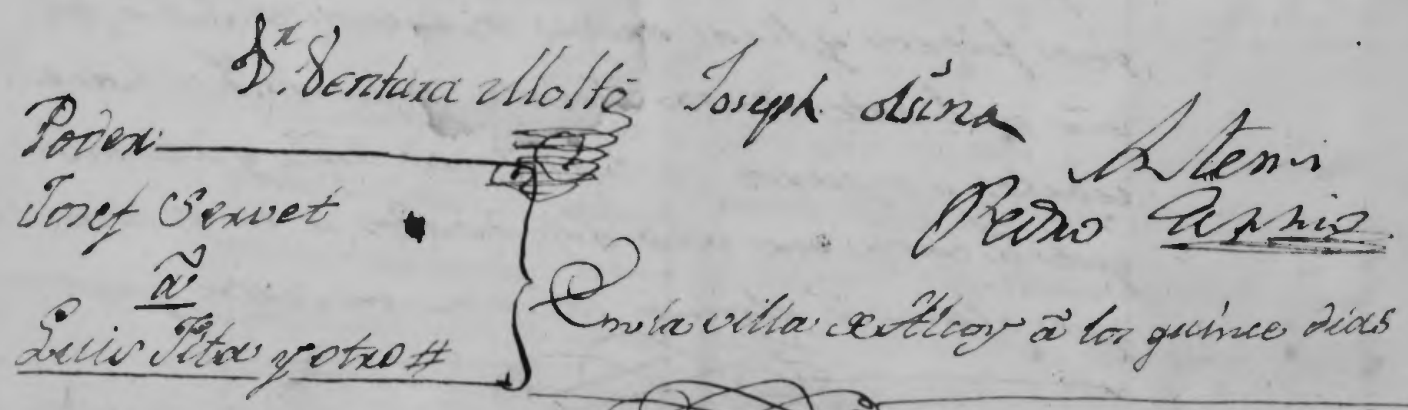 Dn. Ventura Moltó Joseph
Ante mi
Pedro
Poder
Josef Servet
â
Luis Pita y otro #
En la villa de Alcoy â los quince dias